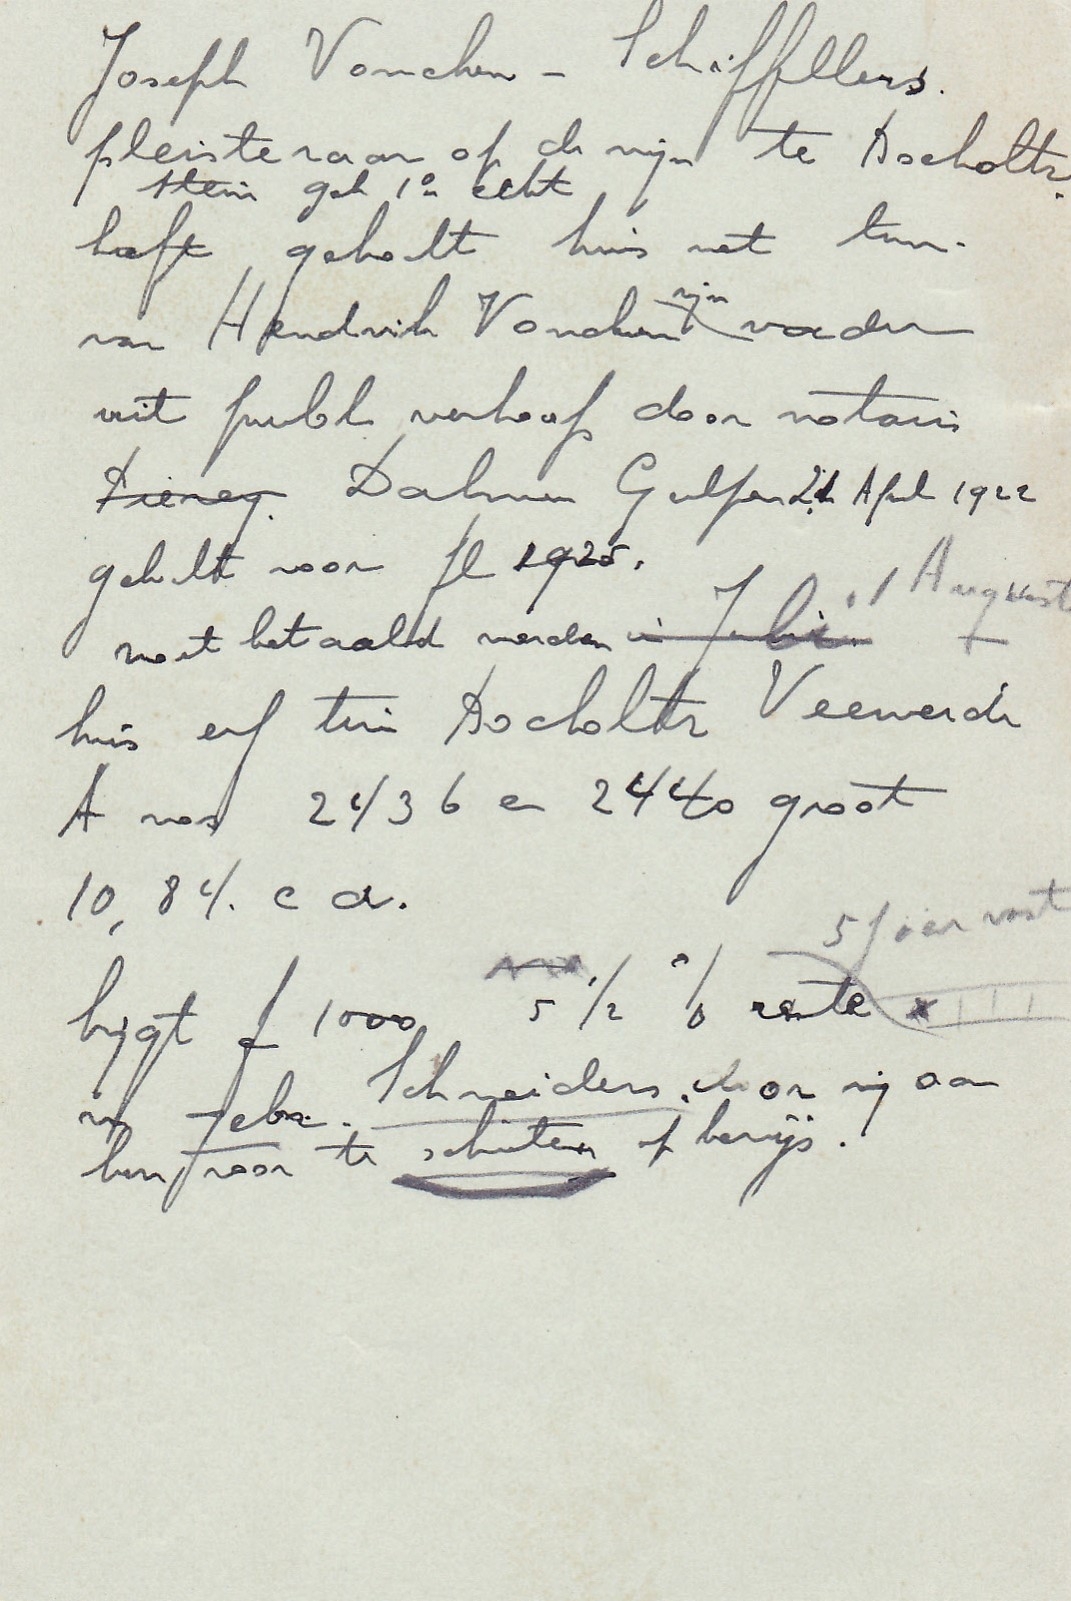 Joseph Voncken - Schiffelers.
pleisteraar op de mijn te Bocholtz.
geh 1e echt
heeft gekocht huis met tuin.
van Hendrik Voncken zijn vader
uit publ. verkoop door notaris
Dahmen Gulpen 21 April 1922
gekocht voor fl 1925.
moet betaald worden in Juli. 1 Augustus
huis erf tuin Bocholtz Veeweide
A nos 2436 en 2440 groot
10,84. c a.
5 jaar vast
krijgt f 1000 5 1/2 % rente x
in febr. Schneiders. door mij aan
hen voor te schieten op bewijs.